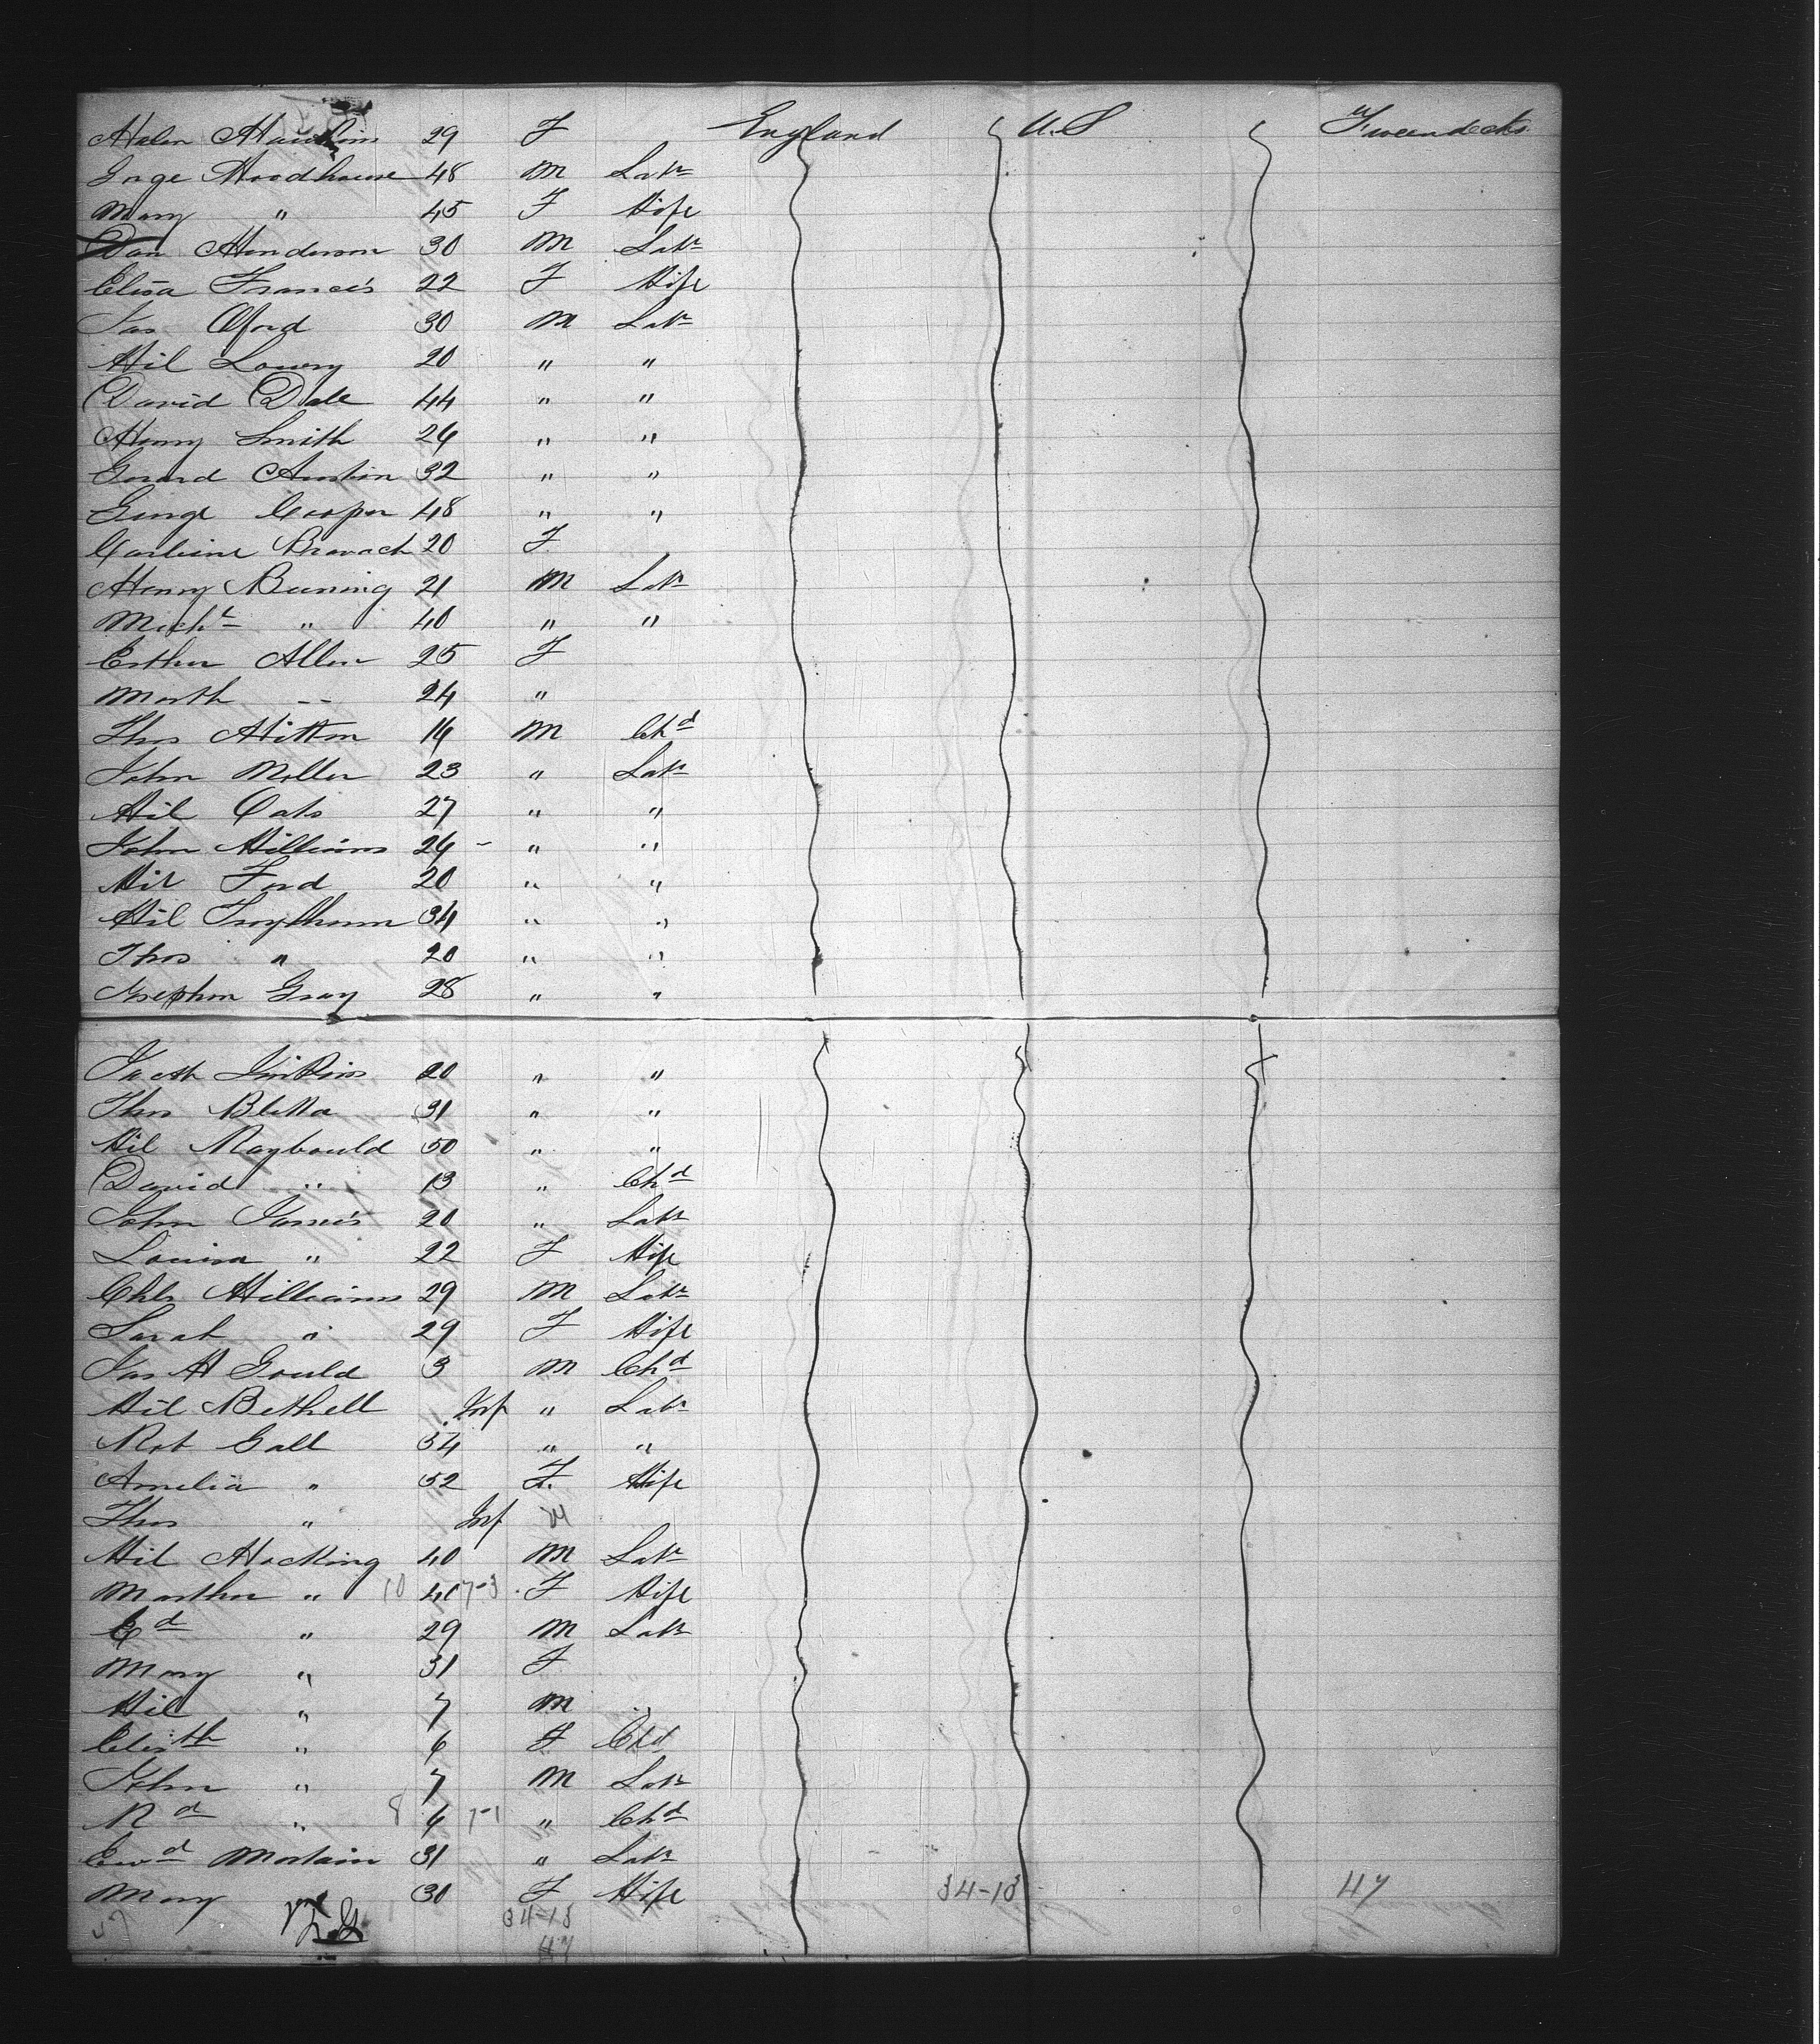 Helen Hawkins 29 F England U.S Tweendecks
Gorge Woodhouse 48 M Labr
Mary " 45 F Wife
Dan Henderson 30 M Labr
Elisa Francis 22 F Wife
Jas Oford 30 M Labr
Wil Lowry 20 " "
David Dale 44 " "
Henry Smith 26 " "
Gerard Austin 32 " "
George Cooper 48 " "
20 F
Henry Buning 21 M Labr
Michl " 40 " "
Esther Allen 25 F
Marth -- 24 "
Thos Hitton 16 M Chd
John Moller 23 " Labr
Wil Oats 27 " "
John Williams 26 - " "
Wil Ford 20 " "
Wil 34 " "
Thos " 20 " "
Josephm Gray 28 " "
Jacob Jinkins 20 " "
Thos Bletta 31 " "
Wil Raybould 50 " "
David " 13 " Chd
John James 20 " Labr
Louisa " 22 F Wife
Chls Williams 29 M Labr
Sarah " 29 F Wife
Jas H Gould 3 M Chd
Wil Bethell Inf " Labr
Rob Gall 54 " "
Amelia " 52 F. Wife
Thos " Inf M
Wil Hocking 40 M Labr
Martha " 10 41 7-3 F Wife
Ed " 29 M Labr
Mary " 31 F
Wil " 7 M "
Elisth " 6 F Chd
John " 7 M Labr
Rd " 8 6 7-1 " Chd
Ewd Mortain 31 " Labr
Mary 30 F Wife 34-13 47
34-13
47